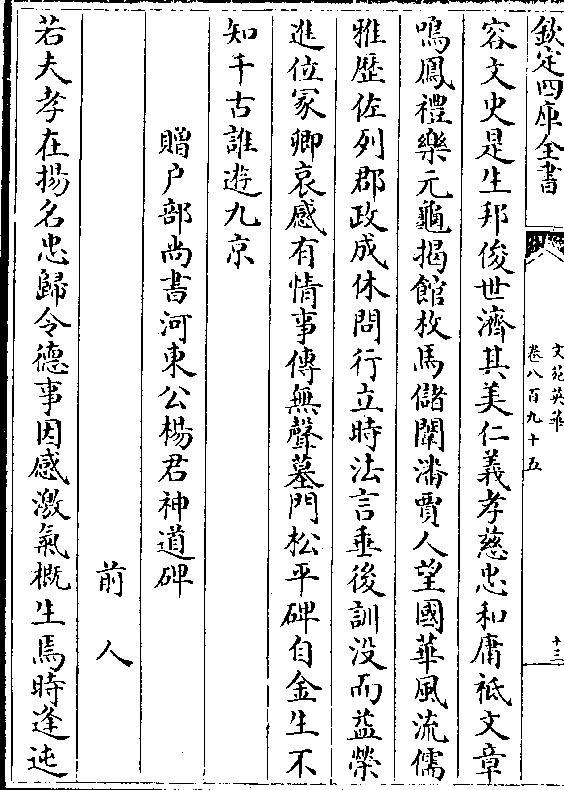 欽定四庫全書
文苑英華
卷八百九十五
十三
容文史是生邦俊世濟其美仁義孝慈忠和庸祗文章
鳴鳳禮樂元龜揭館枚馬儲闈潘賈人望國華風流儒
雅歴佐列郡政成休問行立時法言垂後訓没而益榮
進位冢卿哀感有情事傳無聲墓門松平碑自金生不
知千古誰遊九京
贈户部尚書河東公楊君神道碑
前人
若夫孝在揚名忠歸令德事因感激氣概生焉時逢迍